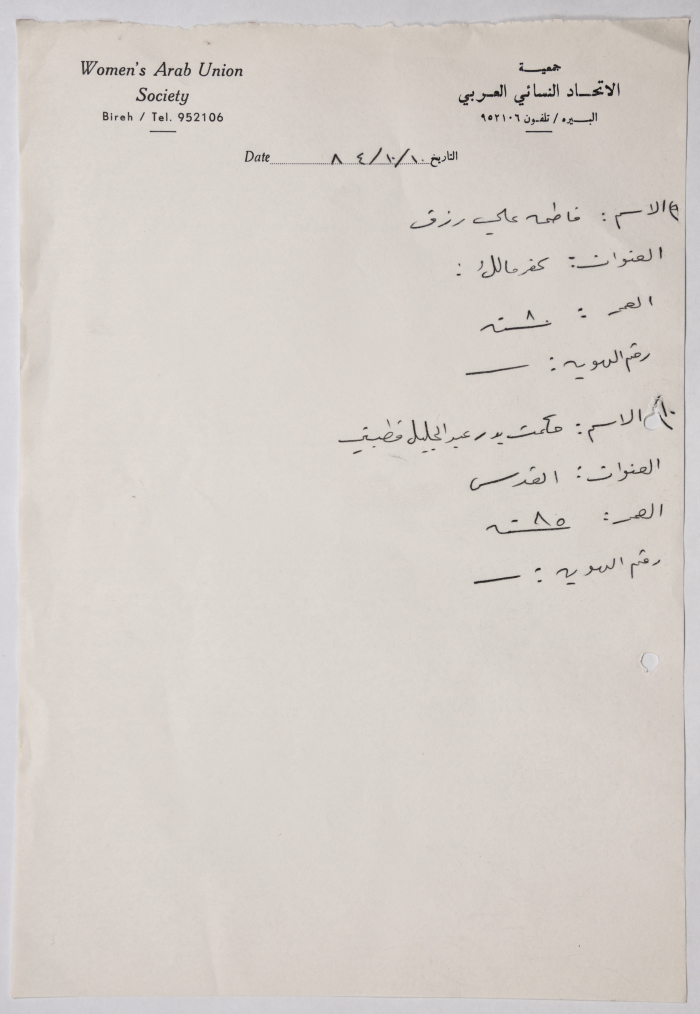 Women's Arab Union
Society
Bireh / Tel. 952106
جمعيــة
الاتحــاد النسائي العــربي
البــيره / تلفــون ٩٥٢١٠٦
Date ٨٤/١٠/١٠ التاريخ
٩) الاسم : فاطمه علي رزق
العنوان : كفر مالك :
العمر : ٨٠ سنه
رقم الهويه : —
١٠) الاسم : حكمت بدر عبد الجليل
العنوان : القدس
العمر : ٨٥ سنه
رقم الهويه : —